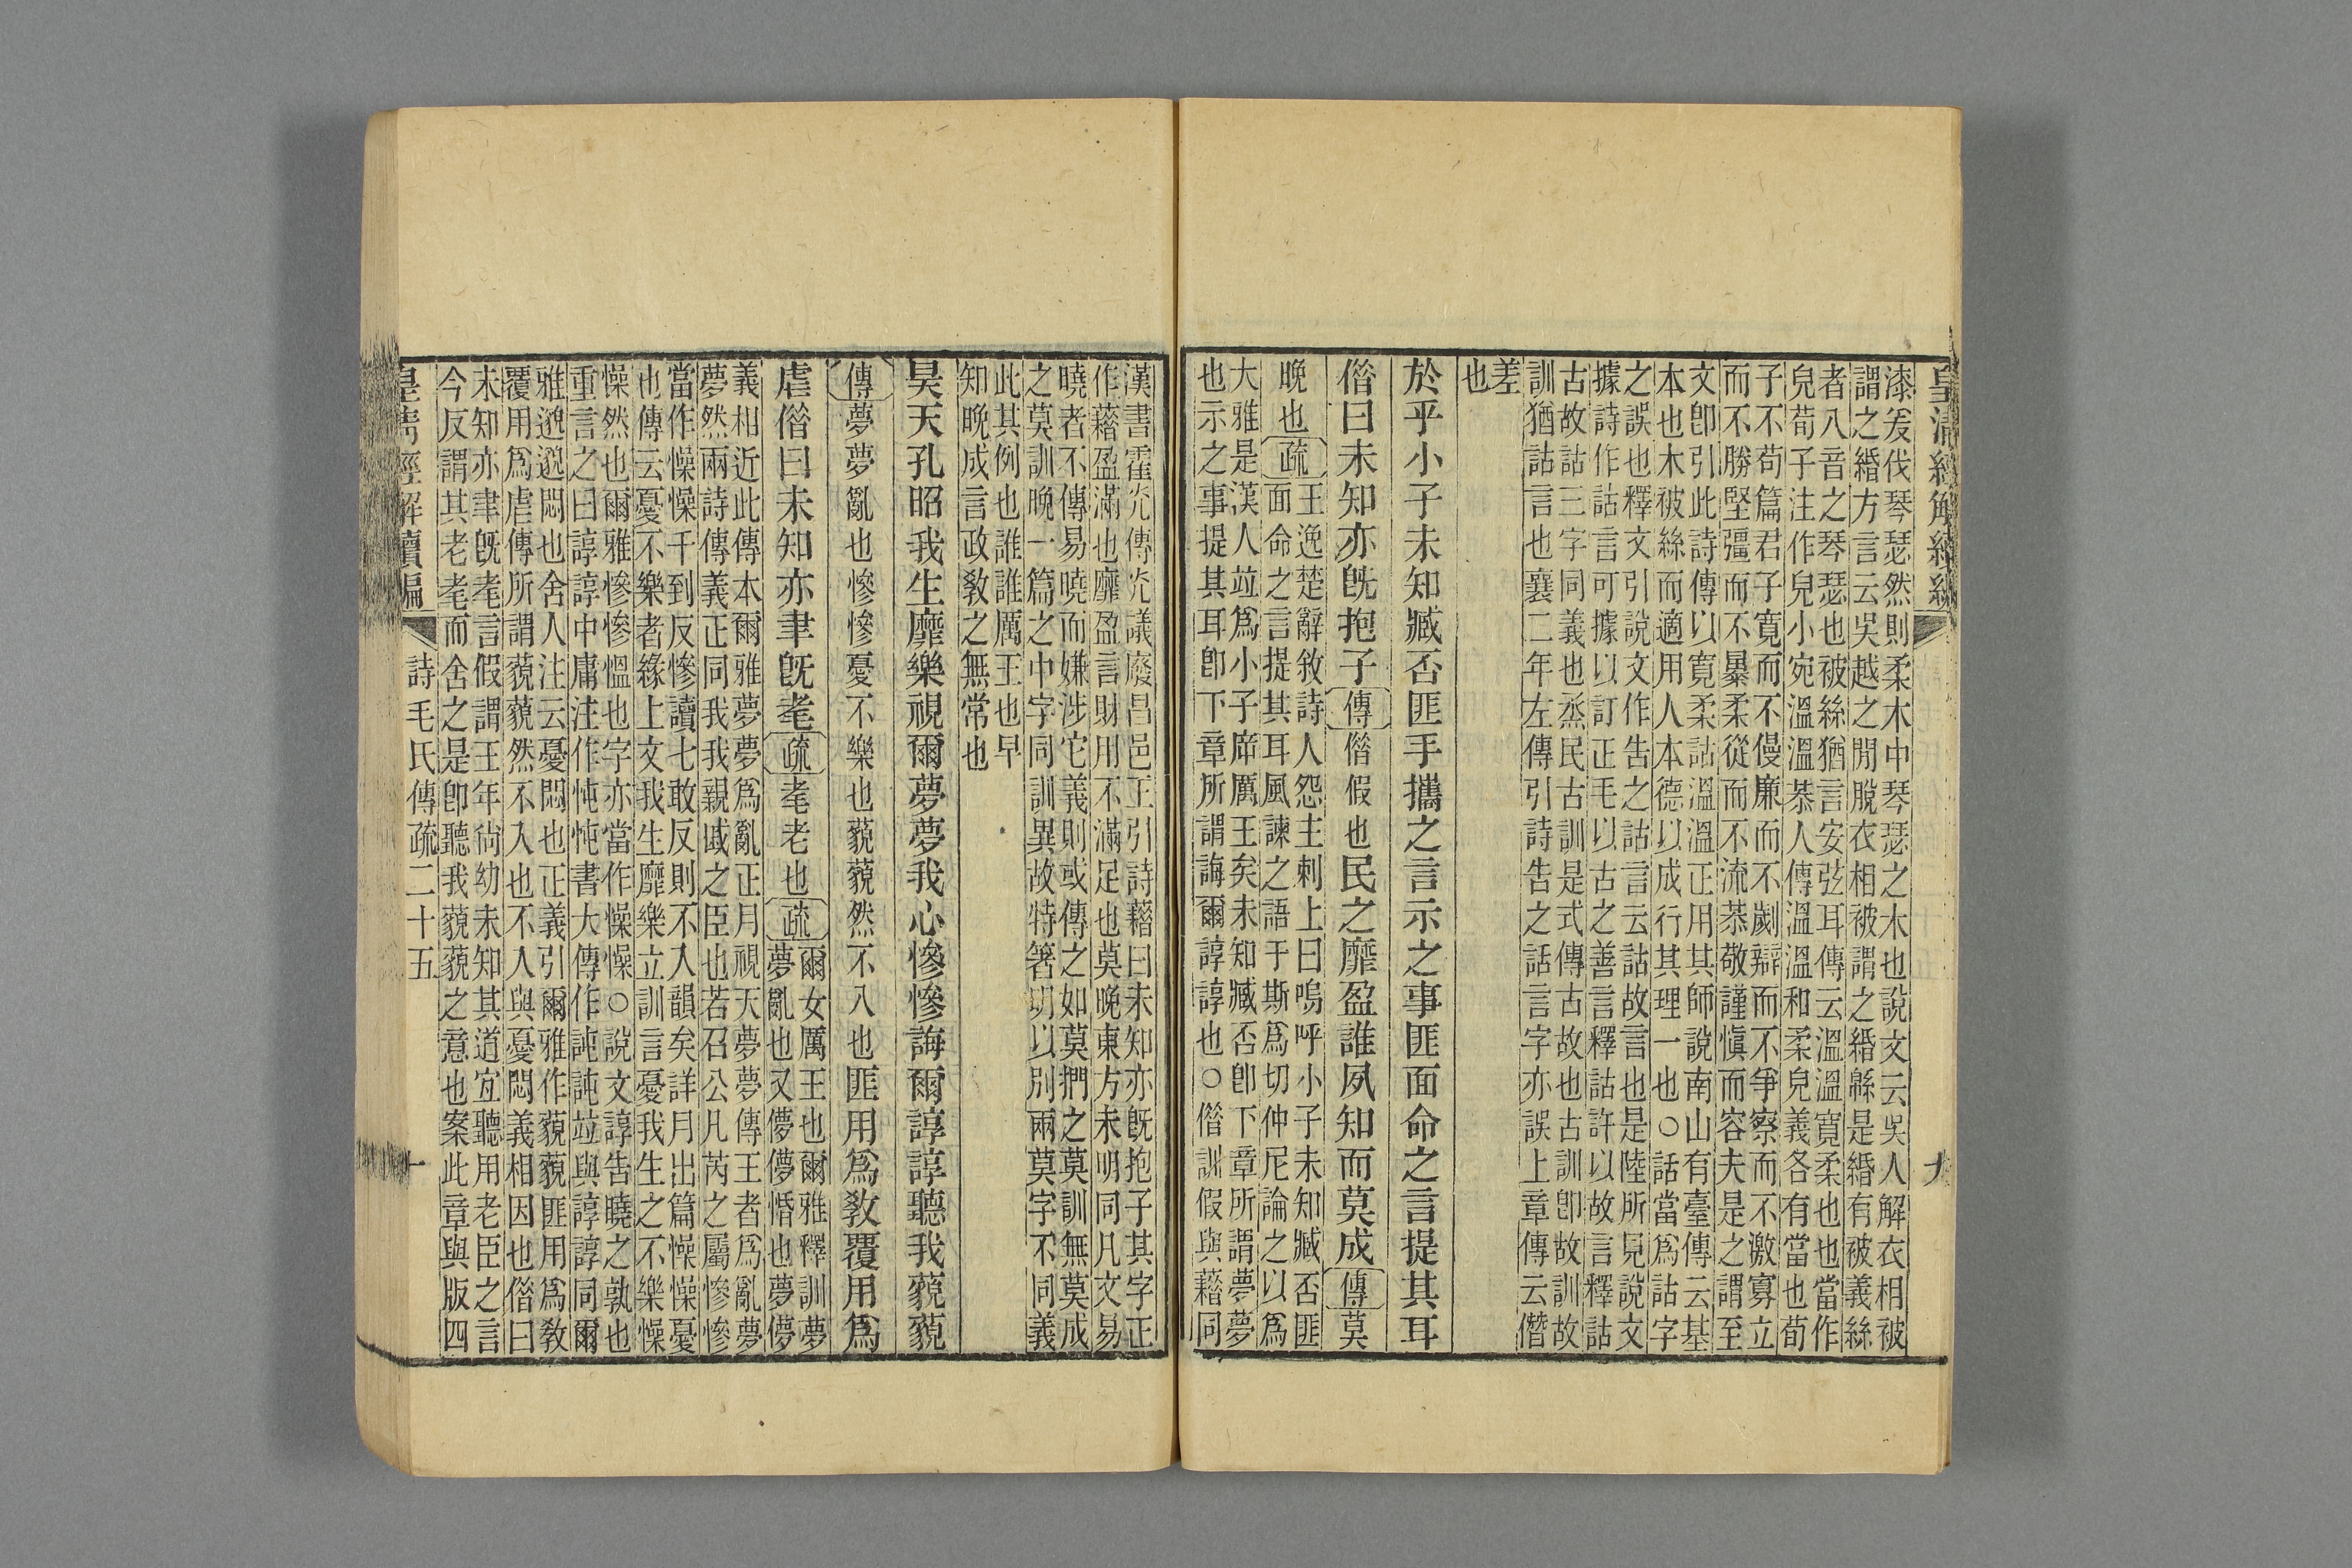 皇清經解續編
九
漆爰伐琴瑟然則柔木中琴瑟之木也說文云吳人解衣相被
謂之緡方言云吳越之閒脫衣相被謂之緡緜是緡有被義絲
者八音之琴瑟也被絲猶言安弦耳傳云溫溫寬柔也也當作
皃荀子注作皃小宛溫溫恭人傳溫溫和柔皃義各有當也荀
子不苟篇君子寬而不僈廉而不劌辯而不爭察而不激寡立
而不勝堅彊而不暴柔從而不流恭敬謹愼而容夫是之謂至
文卽引此詩傳以寬柔詁溫溫正用其師說南山有臺傳云基
本也木被絲而適用人本德以成行其理一也○話當爲詁字
之誤也釋文引說文作告之詁言云詁故言也是陸所見說文
據詩作詁言可據以訂正毛以古之善言釋詁許以故言釋詁
古故詁三字同義也烝民古訓是式傳古故也古訓卽故訓故
訓猶詁言也襄二年左傳引詩告之話言字亦誤上章傳云僭
差
也
於乎小子未知臧否匪手攜之言示之事匪面命之言提其耳
僭曰未知亦旣抱子傳僭假也民之靡盈誰夙知而莫成傳莫
晚也疏王逸楚辭敘詩人怨主刺上曰嗚呼小子未知臧否匪
面命之言提其耳風諫之語于斯爲切仲尼論之以爲
大雅是漢人竝爲小子席厲王矣未知臧否卽下章所謂夢夢
也示之事提其耳卽下章所謂誨爾諄諄也○僭訓假與藉同
漢書霍光傳光議廢昌邑王引詩藉曰未知亦旣抱子其字正
作藉盈滿也靡盈言財用不滿足也莫晚東方未明同凡文易
曉者不傳易曉而嫌涉它義則或傳之如莫捫之莫訓無莫成
之莫訓晚一篇之中字同訓異故特箸明以別兩莫字不同義
此其例也誰誰厲王也早
知晚成言政敎之無常也
昊天孔昭我生靡樂視爾夢夢我心慘慘誨爾諄諄聽我藐藐
傳夢夢亂也慘慘憂不樂也藐藐然不入也匪用爲敎覆用爲
虐僭曰未知亦聿旣耄疏耄老也疏爾女厲王也爾雅釋訓夢
夢亂也又儚儚惛也夢夢儚
義相近此傳本爾雅夢夢爲亂正月視天夢夢傳王者爲亂夢
夢然兩詩傳義正同我我親戚之臣也若召公凡芮之屬慘慘
當作懆懆千到反慘讀七敢反則不入韻矣詳月出篇懆懆憂
也傳云憂不樂者緣上文我生靡樂立訓言憂我生之不樂懆
懆然也爾雅慘慘慍也字亦當作懆懆○說文諄告曉之孰也
重言之曰諄諄中庸注作忳忳書大傳作訰訰竝與諄諄同爾
雅邈邈悶也舍人注云憂悶也正義引爾雅作藐藐匪用爲敎
覆用爲虐傳所謂藐藐然不入也不入與憂悶義相因也僭曰
未知亦聿旣耄言假謂王年尙幼未知其道宜聽用老臣之言
今反謂其老耄而舍之是卽聽我藐藐之意也案此章與版四
皇淸經解續編
詩毛氏傳疏二十五